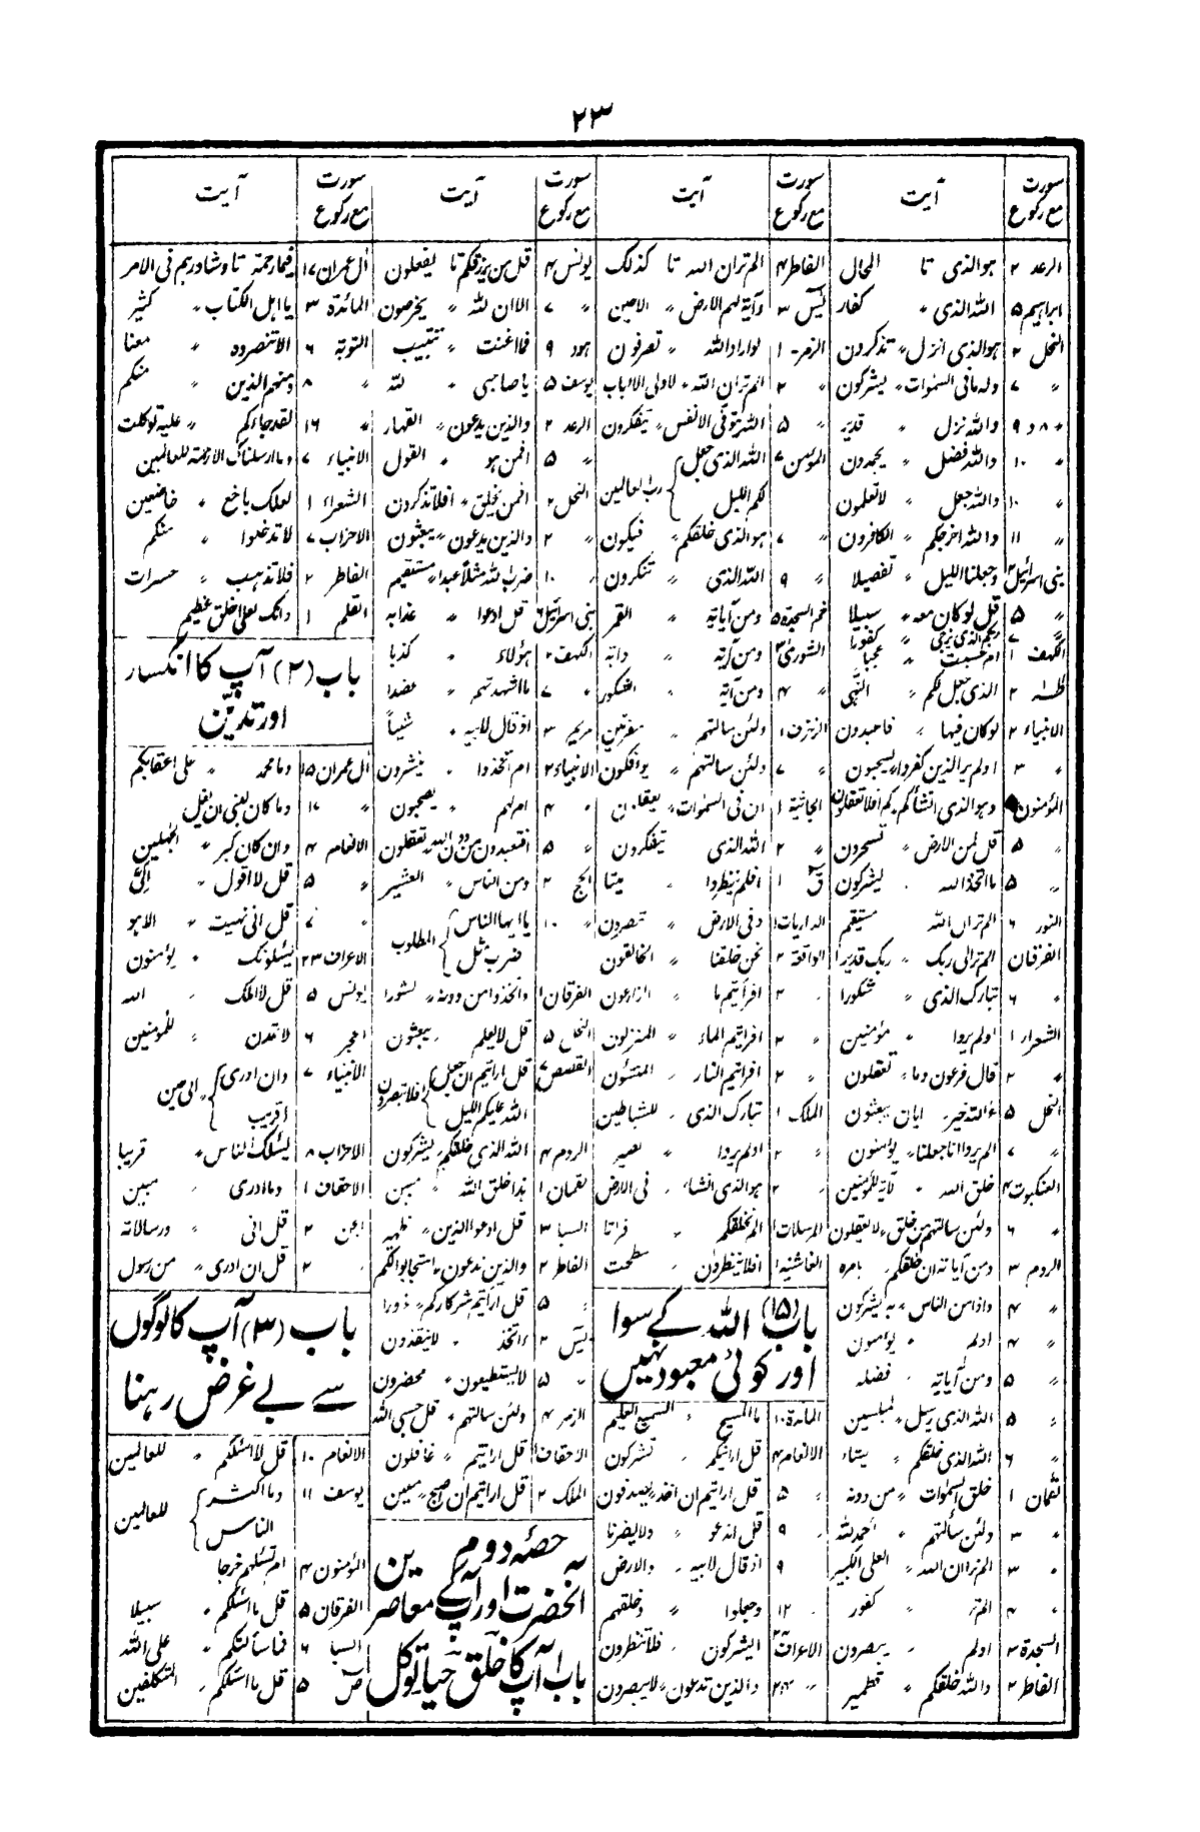 ۲۳
سورت مع رکوع آیت
الرعد ۲ ہوالذی تا المحال
ابراہیم ۵ اللہ الذی " کفار
النحل ۲ ہوالذی انزل " تذکرون
" ۷ ولہ مافی السمٰوات " یشرکون
" ۸ و ۹ واللہ نزل " قدیر
" ۱۰ واللہ فضل " یجحدون
" ۱۰ واللہ جعل " لاتعلمون
" ۱۱ واللہ اخرجکم " الکافرون
بنی اسرائیل ۲ وجعلنا اللیل " تفصیلا
" ۵ قل لوکان معہ " سبیلا
" ۷ ربکم الذی یزجی " کفورا
الکہف ۱ ام حسبت " عجبا
طٰہٰ ۲ الذی جعل لکم " النہی
الانبیاء ۲ لوکان فیہا " فاعبدون
" ۳ اولم یرالذین کفروا " یسبحون
المؤمنون وہوالذی انشاًلکم " افلاتعقلون
" ۵ قل لمن الارض " تسحرون
" ۵ مااتخذ اللہ " یشرکون
النور ۶ الم تران اللہ مستقیم
الفرقان الم ترالی ربک " ربک قدیرا
" ۶ تبارک الذی " شکورا
الشعراء ۱ اولم یروا " مؤمنین
" ۲ قال فرعون وما " تعقلون
النحل ۵ ءاللہ خیر " ایان یبعثون
" ۷ الم یروا اناجعلنا " یؤمنون
العنکبوت ۴ خلق اللہ " لآیۃ للمؤمنین
" ۶ ولئن سالتہم من خلق " لایعقلون
الروم ۳ ومن آیاتہ ان خلقکم " بامرہ
" ۴ واذامس الناس " بہ یشرکون
" ۴ اولم " یؤمنون
" ۵ ومن آیاتہ " فضلہ
" ۵ اللہ الذی یرسل " لمبلسین
" ۶ اللہ الذی خلقکم " یشاء
لقمان ۱ خلق السمٰوات " من دونہ
" ۳ ولئن سألتہم " الحمدللہ
" ۳ الم تران اللہ " العلی الکبیر
" ۴ الم تر " کفور
السجدۃ ۳ اولم " یبصرون
الفاطر ۲ واللہ خلقکم " قطمیر
سورت مع رکوع آیت
الفاطر ۴ الم تران اللہ تا کذلک
یٰسٓ ۳ وآیۃ لہم الارض " الاحین
الزمر ۱ لواراداللہ " تصرفون
" ۲ الم تران اللہ " لاولی الالباب
" ۵ اللہ یتوفی الانفس " یتفکرون
المؤمن ۷ اللہ الذی جعل لکم اللیل رب العالمین
" ۷ ہوالذی خلقکم " فیکون
" ۹ اللہ الذی " تنکرون
حٰم السجدۃ ۵ ومن آیاتہ " القمر
الشوریٰ ۳ ومن آیتہ " دابۃ
" ۴ ومن آیتہ " الشکور
الزخرف ۱ ولئن سالتہم " مقرنین
" ۷ ولئن سالتہم " یوفکون
الجاثیۃ ۱ ان فی السمٰوات " یعقلون
" ۲ اللہ الذی یتفکرون
قٓ ۱ افلم ینظروا " میتا
الذاریات ۱ وفی الارض " تبصرون
الواقعۃ ۲ نحن خلقنا " الخالقون
" ۲ افرأیتم ما " الزارعون
" ۲ افرایتم الماء " المنزلون
" ۲ افرایتم النار " المنشئون
الملک ۱ تبارک الذی " للشیاطین
" ۲ اولم یروا " بصیر
" ۲ ہوالذی انشاء " فی الارض
المرسلات ۱ الم نخلقکم " فراتا
الغاشیۃ ۱ افلاینظرون " سطحت
باب (۱۵) اللہ کے سوا
اور کوئی معبود نہیں
المائدۃ ۱۰ ماالمسیح " السمیع العلیم
الانعام ۴ قل ارأیتکم " تشرکون
" ۵ قل ارایتم ان اخذ " یصدفون
" ۹ قل اندعو " ولایضرنا
" ۹ اذقال لابیہ " والارض
" ۱۲ وجعلوا " وخلقہم
الاعراف ایشرکون " فلاتنظرون
" ۲۴ والذین تدعون " لایبصرون
سورت مع رکوع آیت
یونس ۴ قل من یرزقکم تا یفعلون
" ۷ الاان للہ " یخرصون
ہود ۹ فمااغنت " تتبیب
یوسف ۵ یاصاحبی " للہ
الرعد ۲ والذین یدعون " القہار
" ۵ افمن ہو " القول
النحل ۲ افمن یخلق " افلاتذکرون
" ۲ والذین یدعون " یبعثون
" ۱۰ ضرب اللہ مثلاًعبدا " مستقیم
بنی اسرائیل ۶ قل ادعوا " عذابہ
الکہف ۲ ہؤلاء " کذبا
" ۷ مااشہدتہم " عضدا
مریم ۳ اذقال لابیہ " شیئاً
الانبیاء ۲ ام اتخذوا " ینشرون
" ۴ ام لہم " یصحبون
" ۵ افتعبدون من دون اللہ " تعقلون
الحج ۲ ومن الناس " العشیر
" ۱۰ یاایہاالناس ضرب مثل المطلوب
الفرقان ۱ واتخذوا من دونہ " نشورا
النحل ۵ قل لایعلم " یبعثون
القصص ۷ قل ارایتم ان جعل اللہ علیکم اللیل افلاتبصرون
الروم ۴ اللہ الذی خلقکم " یشرکون
لقمان ۱ ہذاخلق اللہ " مبین
السبا ۳ قل ادعواالذین " ظہیر
الفاطر ۲ والذین تدعون " مااستجابوالکم
" ۵ قل ارایتم شرکاءکم " غرورا
یٰسٓ ۲ ءاتخذ " لاینقذون
" ۵ لایستطیعون " محضرون
الزمر ۴ ولئن سالتہم " قل حسبی اللہ
الاحقاف ۱ قل ارایتم " غافلون
الملک ۲ قل ارایتم ان اصبح " معین
حصّہ دوم
آنحضرت اور آپ کے معاصرین
باب ۱ آپ کا خلق حیا توکل
سورت مع رکوع آیت
اٰل عمران ۱۷ فبمارحمۃ تا وشاورہم فی الامر
المائدۃ ۳ یااہل الکتاب " کثیر
التوبۃ ۶ الاتنصروہ " معنا
" ۸ ومنہم الذین " منکم
" ۱۶ لقدجاءکم " علیہ توکلت
الانبیاء ۷ وماارسلناک الارحمۃ للعالمین
الشعراء ۱ لعلک باخع " خاضعین
الاحزاب ۷ لاتدخلوا " منکم
الفاطر ۲ فلاتذہب " حسرات
القلم ۱ وانک لعلیٰ خلق عظیم
باب (۲) آپ کا انکسار
اور تدیّن
اٰل عمران ۱۵ ومامحمد " علیٰ اعقابکم
" ۱۷ وماکان لنبی ان یغل
الانعام ۴ وان کان کبر " الجٰہلین
" ۵ قل لااقول " الیّ
" ۷ قل انی نہیت " الاہو
الاعراف ۲۳ یسئلونک " یؤمنون
یونس ۵ قل لااملک " اللہ
الحجر ۶ لاتمدن " للمومنین
الانبیاء ۷ وان ادری اقریب الیٰ حین
الاحزاب ۸ یسئلک الناس " قریبا
الاحقاف ۱ وماادری " مبین
الجن ۲ قل انی " ورسالاتہ
" ۲ قل ان ادری " من رسول
باب (۳) آپ کا لوگوں
سے بے غرض رہنا
الانعام ۱۰ قل لااسئلکم " للعالمین
یوسف ۱۱ ومااکثر الناس للعالمین
المؤمنون ۴ ام تسئلہم خرجا
الفرقان ۵ قل مااسئلکم " سبیلا
السبا ۶ قل ماسألتکم " علی اللہ
صٓ ۵ قل مااسئلکم " المتکلفین